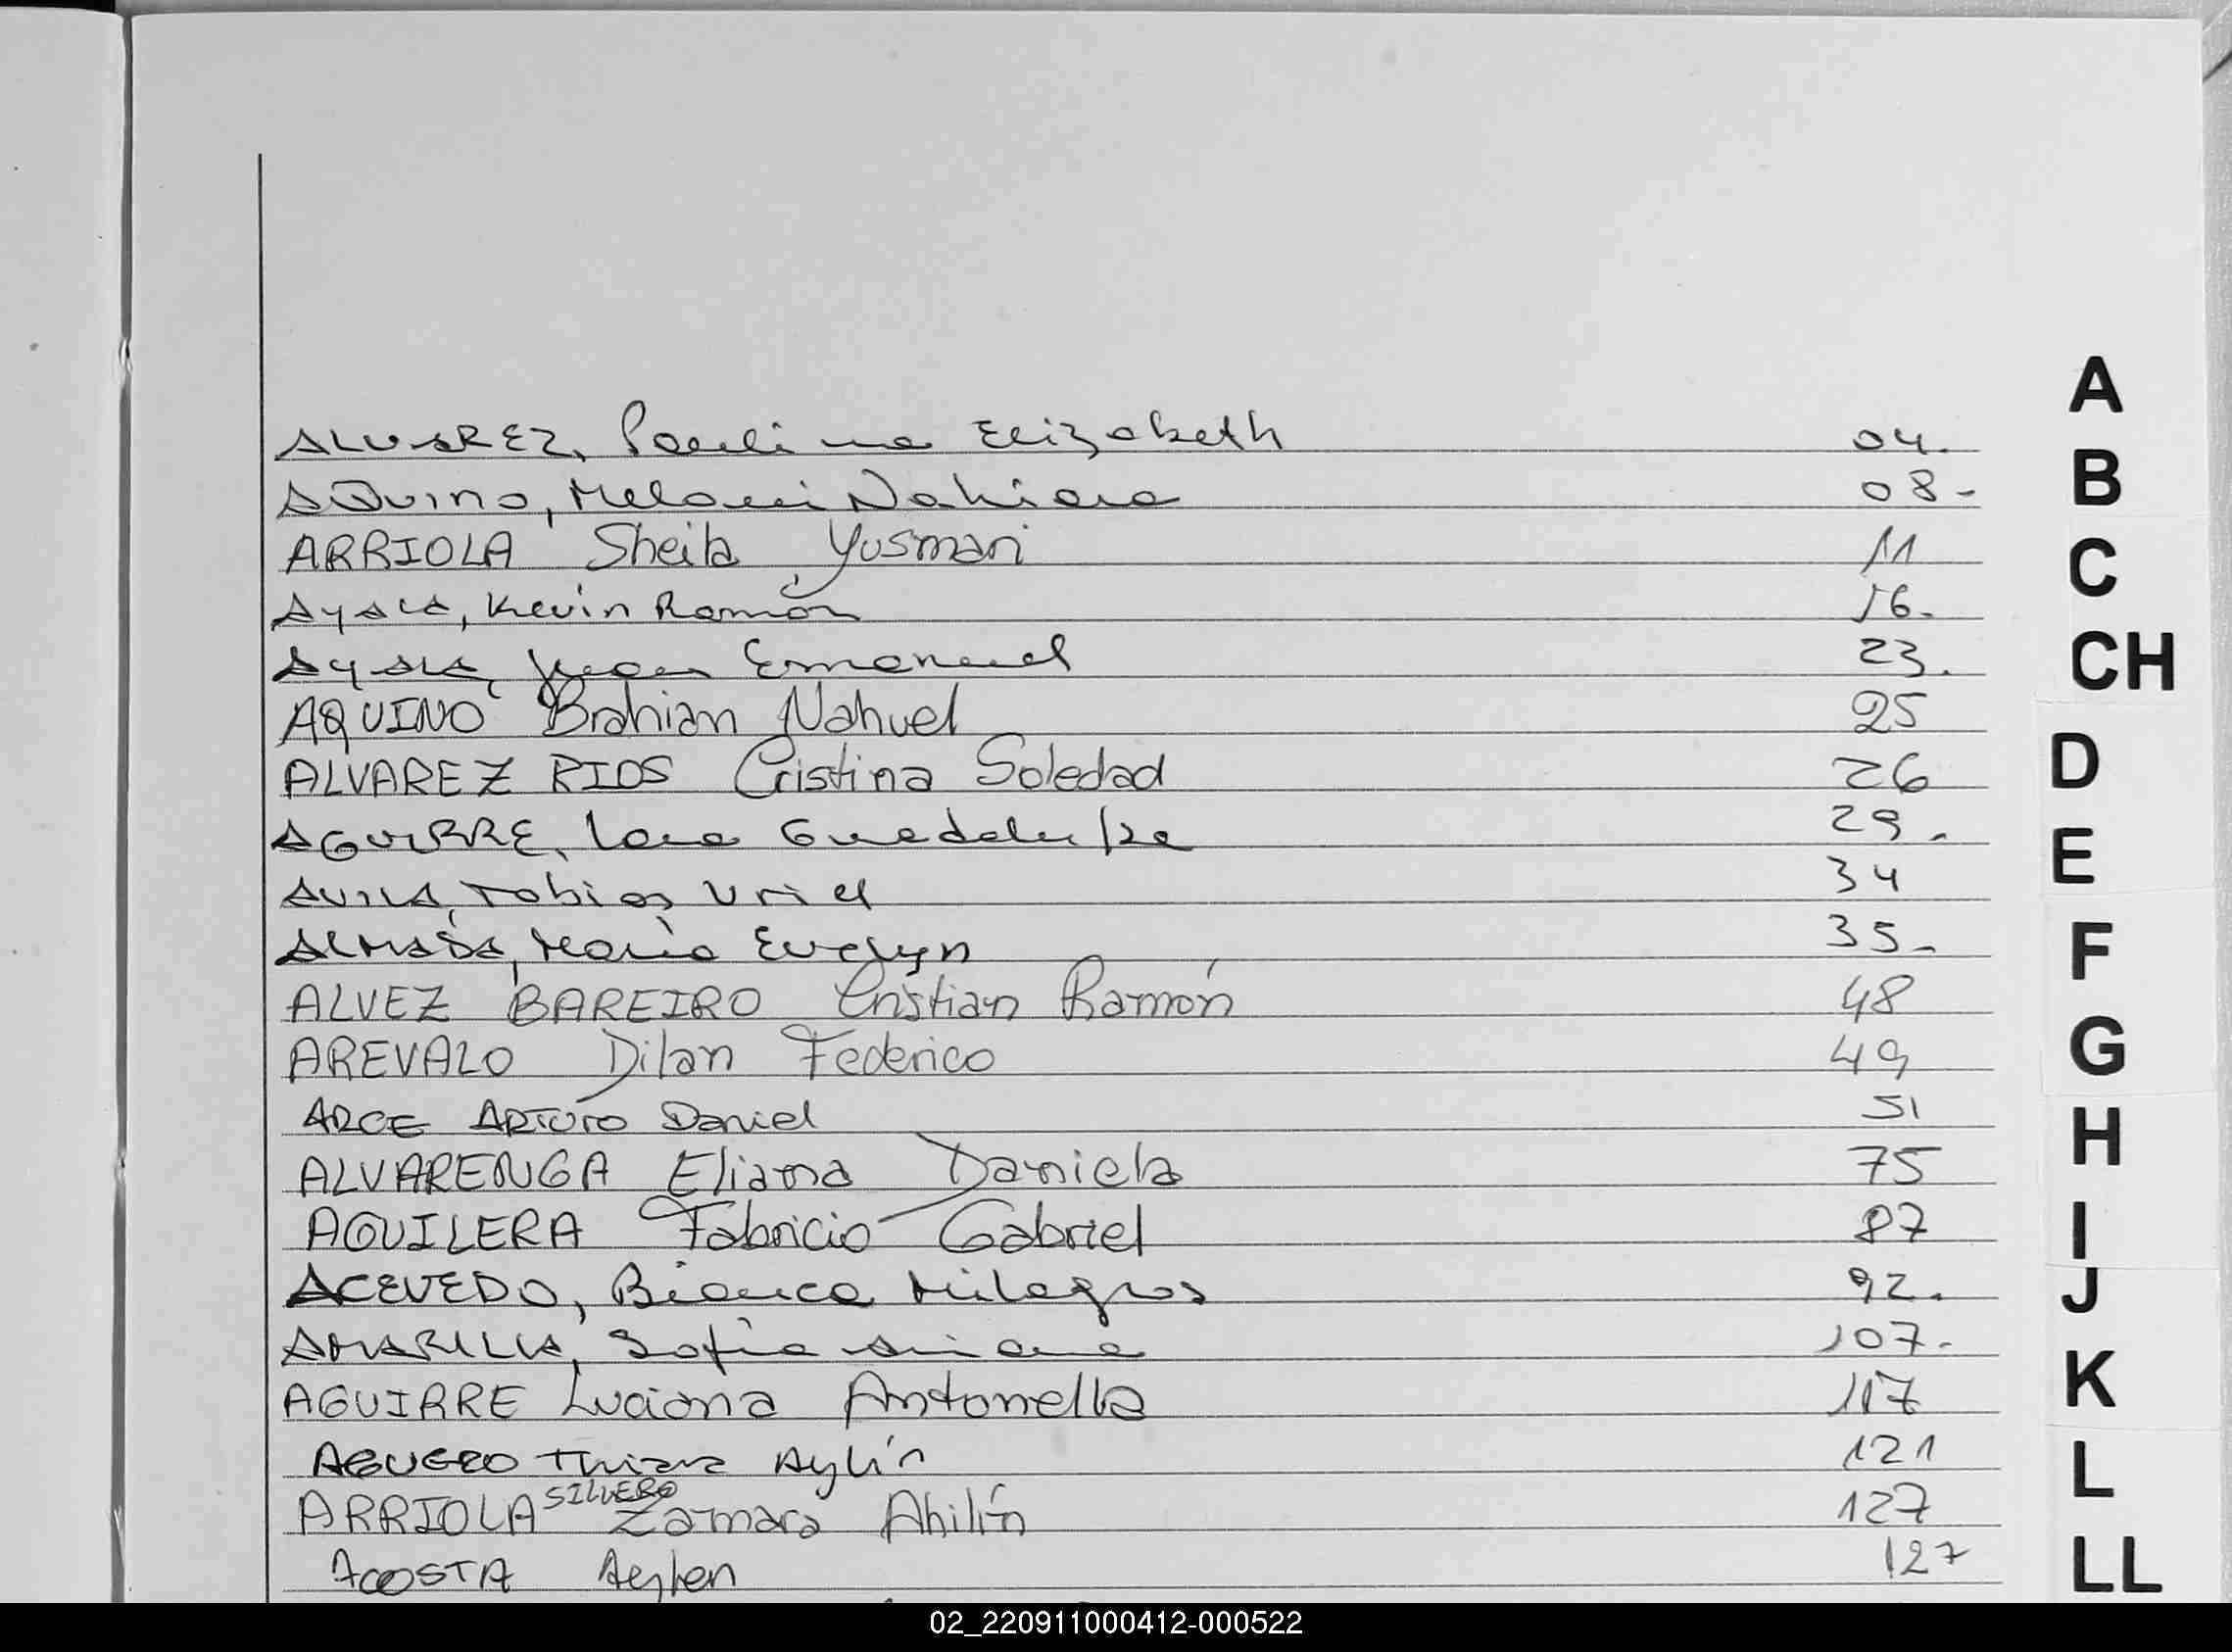 ALVAREZ, Paulina Elizabeth 04.
AQuino, Melani Nahiara 08-
ARRIOLA Sheila Yusmari 11
Ayala, Kevin Ramón 16.
Ayala, Juan Emanuel 23.
AQUINO Brahian Nahuel 25
ALVAREZ RIOS Cristina Soledad 26
AGUIRRE, Lara Guadalupe 29.
AVILA, Tobias Uriel 34
ALMADA, María Evelyn 35-
ALVEZ BAREIRO Cristian Ramón 48
AREVALO Dilan Federico 49
ARCE ARTURO Daniel 51
ALVARENGA Eliana Daniela 75
AGUILERA Fabricio Gabriel 87
ACEVEDO, Bianca Milagros 92.
AMARILLA, Sofía Ariana 107-
AGUIRRE Luciana Antonella 117
AGUERO Thiara Aylín 121
ARRIOLA SILVERO Zamara Ahilín 127
ACOSTA Aylen 127
A
B
C
CH
D
E
F
G
H
I
J
K
L
LL
02_220911000412-000522